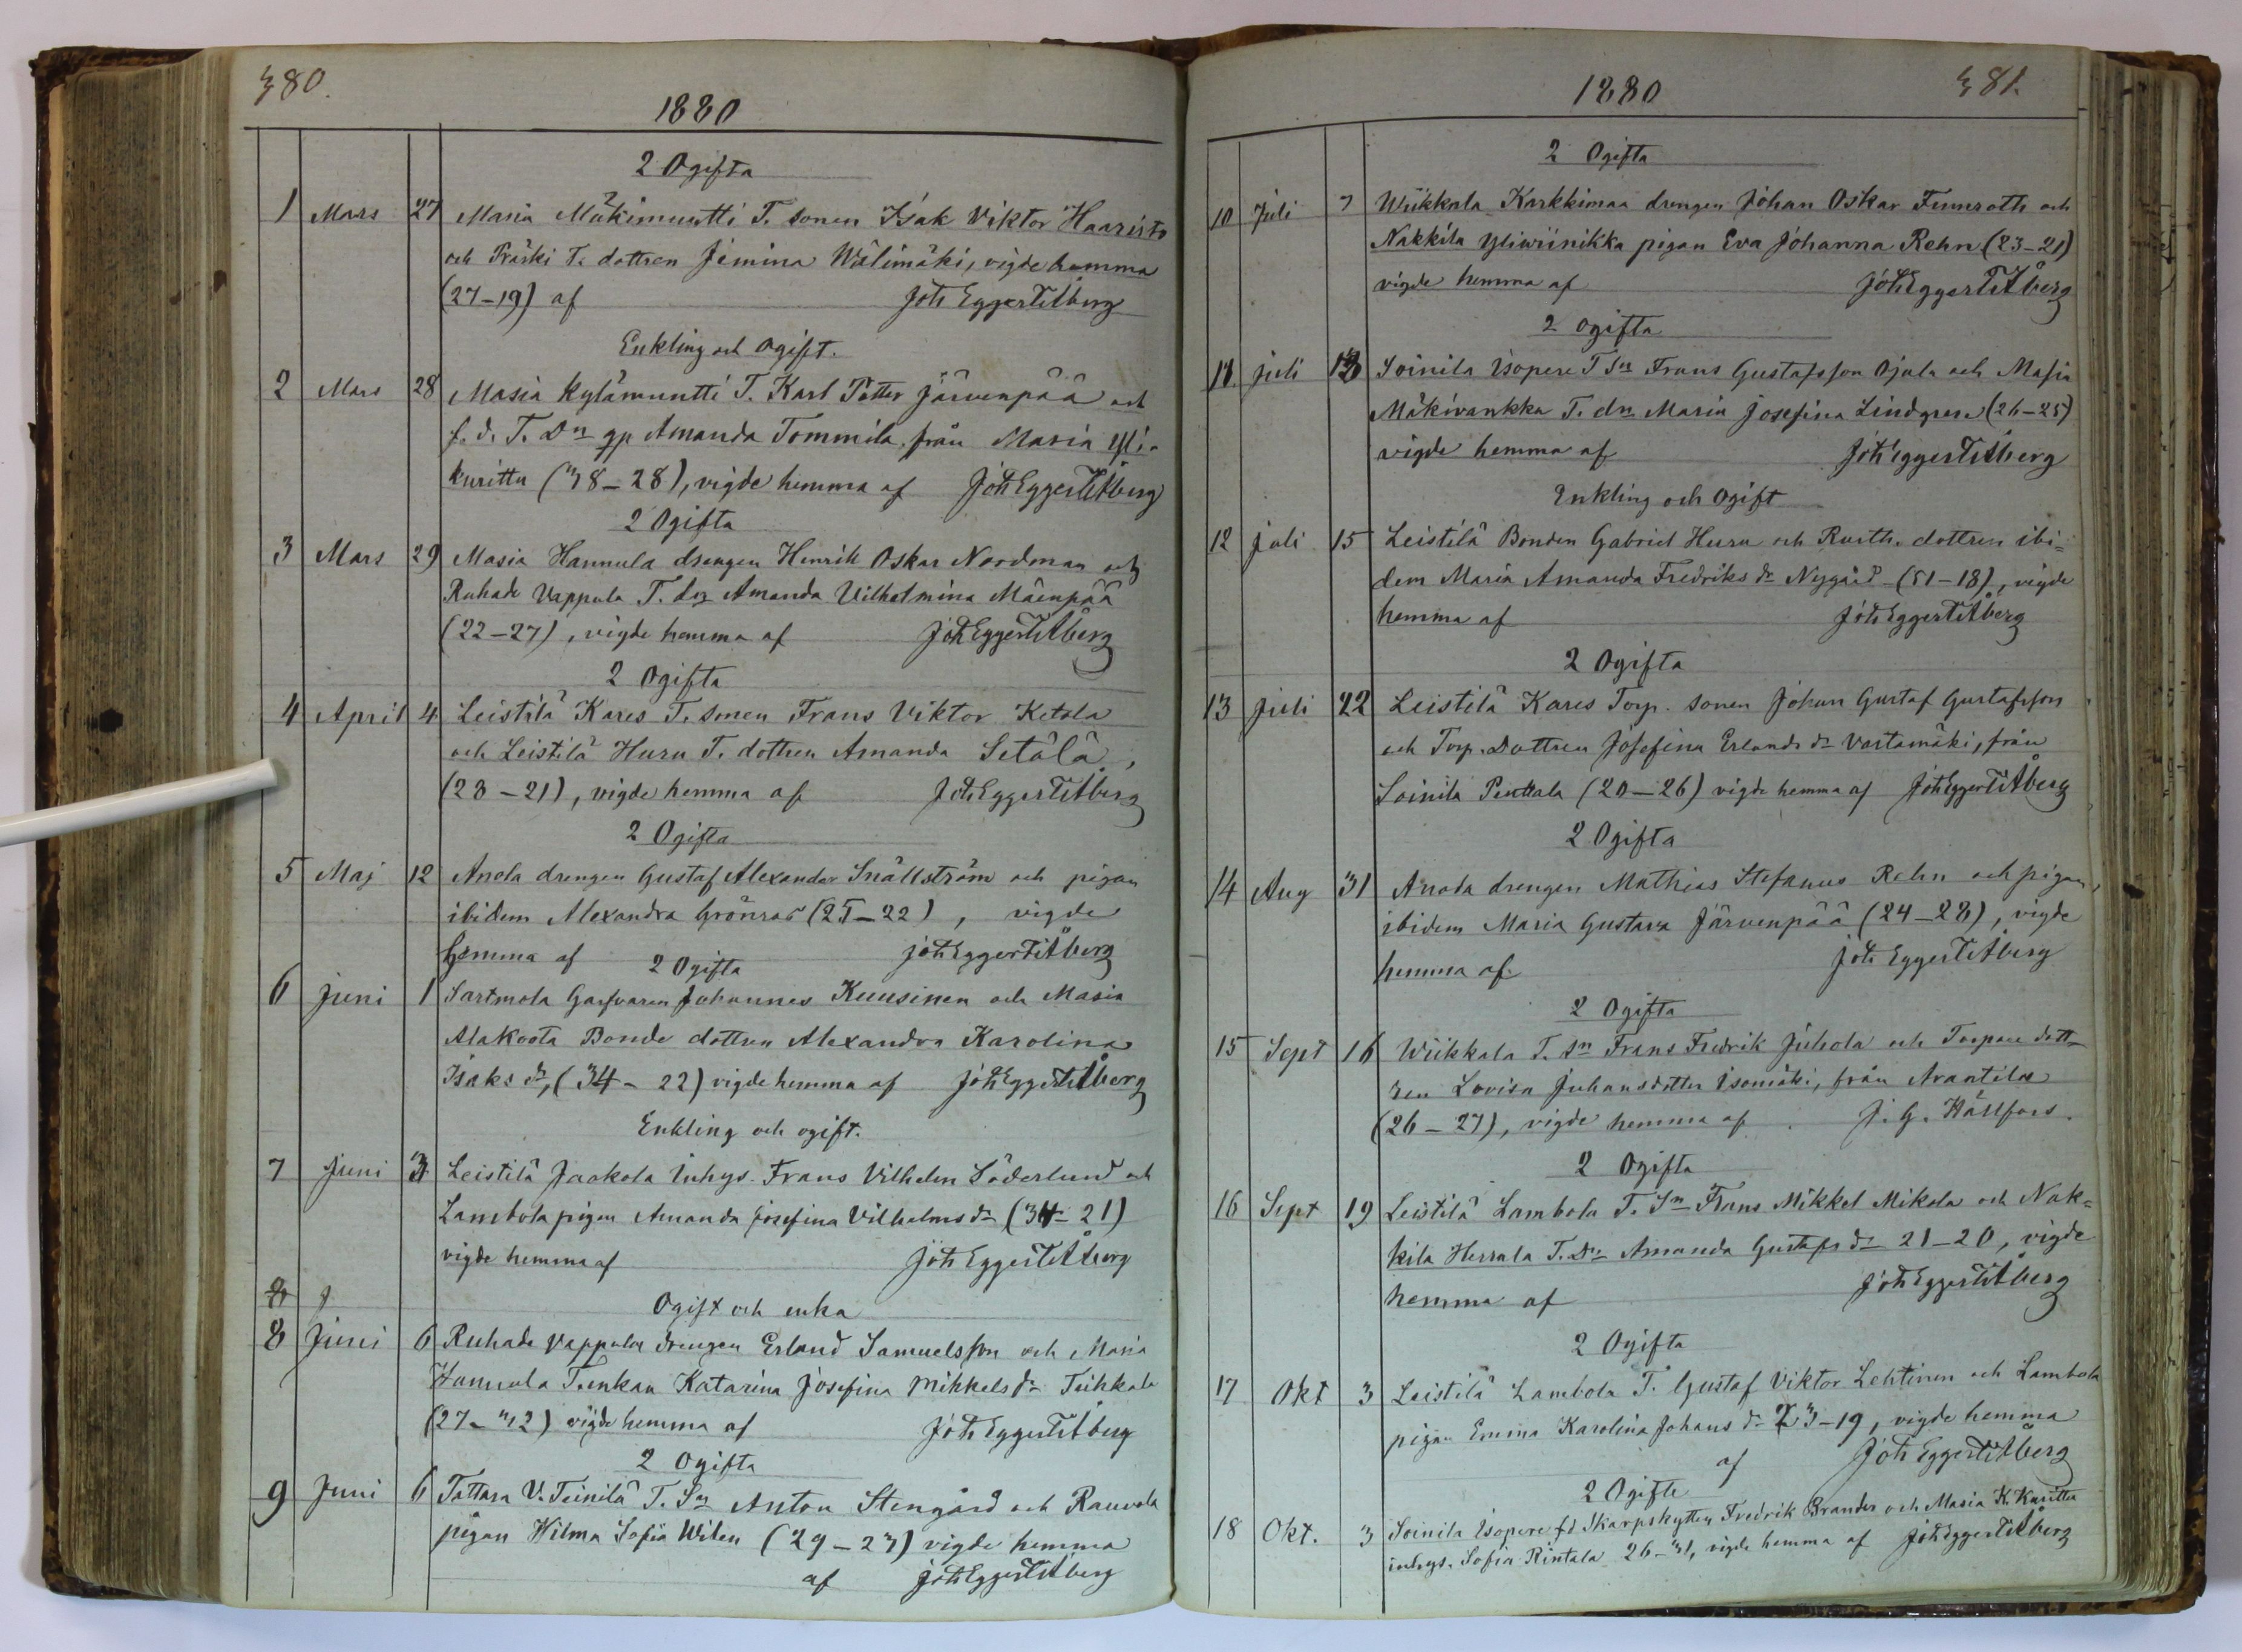 380.
1880
2 Ogifta
1 Mars 27 Masia Mäkimuntti T. sonen Isak Viktor Haaristo
och Präski T. dottren Jemina Wälimäki, vigde hemma
(27-19) af Joh Eggert Åberg
Enkling och Ogift.
2 Mars 28 Masia Kylämuntti T. Karl Petter Järvenpää och
f.d. T. Dn gp Amanda Tommila från Masia Yli-
kuritta (38-28), vigde hemma af Joh Eggert Åberg
2 Ogifta
3 Mars 29 Masia Hannula drengen Henrik Oskar Nordman och
Ruhade Vappula T. dn Amanda Vilhelmina Mäenpää
(22-27), vigde hemma af Joh Eggert Åberg
2 Ogifta
4 April 4 Leistilä Kares T. sonen Frans Viktor Ketola
och Leistilä Huru T. dottren Amanda Setälä,
(23-21), vigde hemma af Joh Eggert Åberg
2 Ogifta
5 Maj 12 Anola drengen Gustaf Alexander Snällström och pigan
ibidem Alexandra Grönroos (25-22), vigde
hemma af Joh Eggert Åberg
2 Ogifta
6 Juni 1 Sartmola Garfvaren Johannes Kuusinen och Masia
Alakoota Bonde dottren Alexandra Karolina
Isaks dr, (34-22) vigde hemma af Joh Eggert Åberg
Enkling och ogift.
7 Juni 3 Leistilä Jaakola Inhys. Frans Vilhelm Söderlund och
Lambola pigan Amanda Josefina Vilhelms dr (34-21)
vigde hemma af Joh Eggert Åberg
8 J
Ogift och enka
8 Juni 6 Ruhade Vappula drengen Erland Samuelsson och Masia
Hannula T.enkan Katarina Josefina Mikkels dr Tuhkala
(27-42) vigde hemma af Joh Eggert Åberg
2 Ogifta
9 Juni 6 Tattara V. Teinilä T. Sn Anton Stengård och Rauvola
pigan Hilma Sofia Wilen (29-23) vigde hemma
af Joh Eggert Åberg
381.
1880
2 Ogifta
10 Juli 7 Wiikkala Karkkimaa drengen Johan Oskar Funnroth och
Nakkila Yliwiinikka pigan Eva Johanna Rehn (23-21)
vigde hemma af Joh Eggert Åberg
2 ogifta
11 juli 13 Soinila Isopere T Sn Frans Gustafsson Ojala och Masia
Mäkivankka T. dn Maria Josefina Lindgren (26-25)
vigde hemma af Joh Eggert Åberg
Enkling och Ogift
12 juli 15 Leistilä Bonden Gabriel Huru och Rusth. dottren ibi=
dem Maria Amanda Fredriks dr Nygård (51-18), vigde
hemma af Joh Eggert Åberg
2 Ogifta
13 Juli 22 Leistilä Kares Torp. sonen Johan Gustaf Gustafsson
och Torp. Dottren Josefina Erlands dr Vartamäki, från
Soinila Penttala (20-26) vigde hemma af Joh Eggert Åberg
2 Ogifta
14 Aug 31 Anola drengen Mathias Stefanus Rehn och pigan
ibidem Maria Gustava Järvenpää (24-28), vigde
hemma af Joh Eggert Åberg
2 Ogifta
15 Sept 16 Wiikkala T. Sn Frans Fredrik Juhola och Torpare dott-
ren Lovisa Juhansdotter Isomäki, från Arantila
(26-27), vigde hemma af J. G. Hällfors.
2 Ogifta
16 Sept 19 Leistilä Lambola T. Sn Frans Mikkel Mikola och Nak=
kila Herrala T. Dr Amanda Gustafs dr 21-20, vigde
hemma af Joh Eggert Åberg
2 Ogifta
17 Okt 3 Leistilä Lambola T. Gustaf Viktor Lehtinen och Lambola
pigan Emina Karolina Johans dr 23-19, vigde hemma
af Joh Eggert Åberg
2 Ogifte
18 Okt. 3 Soinila Isopere fd Skarpskytten Fredrik Brander och Masia K. Kuritta
inhys. Sofia Rintala 26-31, vigde hemma af Joh Eggert Åberg